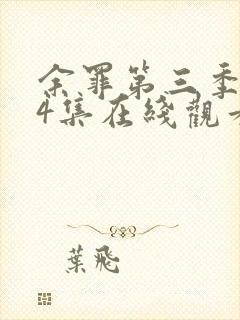 余罪第三季
4集在綫觀
葉飛